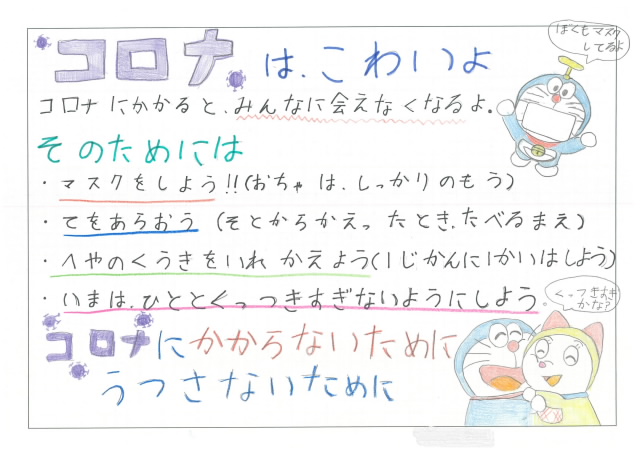 コロナは、こわいよ
ぼくもマスク
してるよ
コロナにかかると、みんなに会えなくなるよ。
そのためには
・マスクをしよう!!(おちゃは、しっかりのもう)
・てをあらおう (そとからかえったとき、たべるまえ)
・へやのくうきをいれかえよう(1じかんに1かいはしよう)
・いまは、ひととくっつきすぎないようにしよう。
くっつきすぎ
かな?
コロナにかからないために
うつさないために